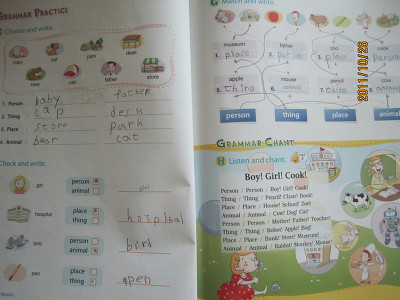 GRAMMAR PRACTICE
Choose and write.
desk
bear
cat
father
store
1. Person baby father
2. Thing cap desk
3. Place store park
4. Animal bear cat
Check and write.
girl
person
animal
girl
hospital
place
animal
hospital
bird
person
animal
bird
pen
place
thing
pen
Match and write.
museum
father
zoo
cook
1. place
3. place
person
apple
mouse
pencil
cow
5. thing
7. thing
person
thing
place
animal
2011/10/26
GRAMMAR CHANT
H Listen and chant.
Boy! Girl! Cook!
Person / Person / Boy! Girl! Cook!
Thing / Thing / Pencil! Chair! Book!
Place / Place / House! School! Zoo!
Animal / Animal / Cow! Dog! Cat!
Person / Person / Mother! Father! Teacher!
Thing / Thing / Robot! Apple! Bag!
Place / Place / Bank! Store! Museum!
Animal / Animal / Rabbit! Monkey! Mouse!